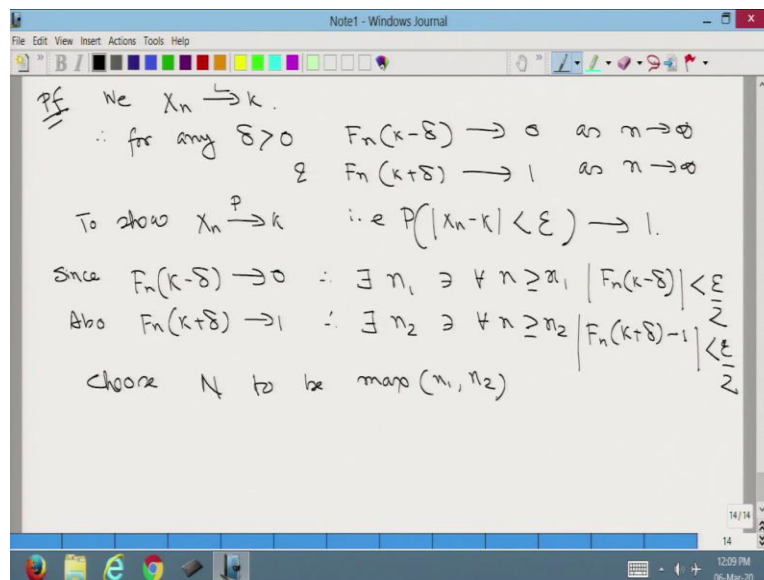 Note1 - Windows Journal
File Edit View Insert Actions Tools Help
B I
Pf We Xn →L k.
∴ for any δ>0 Fn(k-δ) → 0 as n→∞
& Fn(k+δ) → 1 as n→∞
To show Xn →P k i.e P(|Xn-k| < ε) → 1.
Since Fn(k-δ) → 0 ∴ ∃ n1 ∋ ∀ n ≥ n1 |Fn(k-δ)| < ε/2
Also Fn(k+δ) → 1 ∴ ∃ n2 ∋ ∀ n ≥ n2 |Fn(k+δ)-1| < ε/2
Choose N to be max(n1, n2)
14/14
14
12:09 PM
06-Mar-20